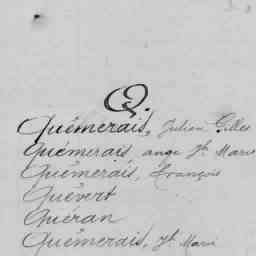 Q.
Quémerais, Julien Gilles
Quémerais ange Jh Marie
Quémerais, François
Quévert
Quéran
Quémerais, Jh Marie